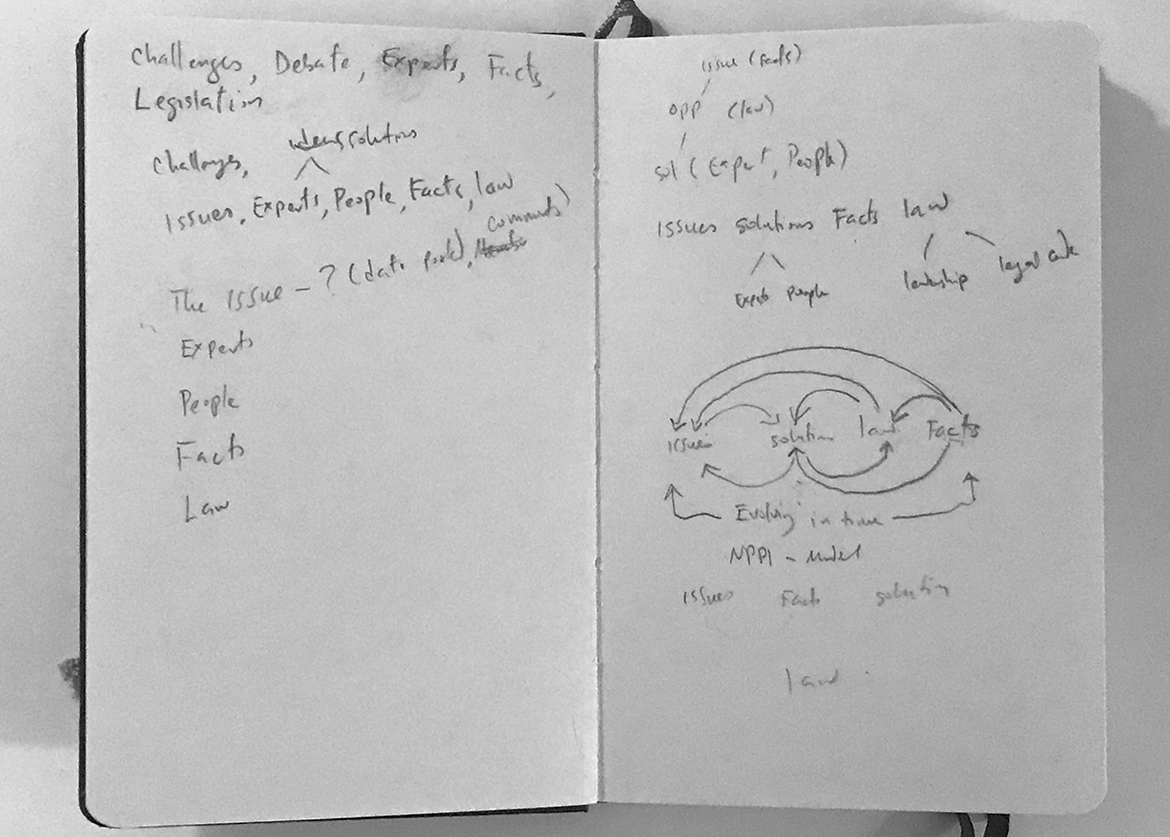 Challenges, Debate, Experts, Facts,
Legislation
solutions
Challenges,
Issues, Experts, People, Facts, law
comments)
The Issue - ? (data
Experts
People
Facts
Law
issue (facts)
opp (law)
sol (Expert, People)
Issues solutions Facts law
Experts People leadership legal code
Issues solution law Facts
Evolving in time
NPPI - Model
Issues Facts solution
law